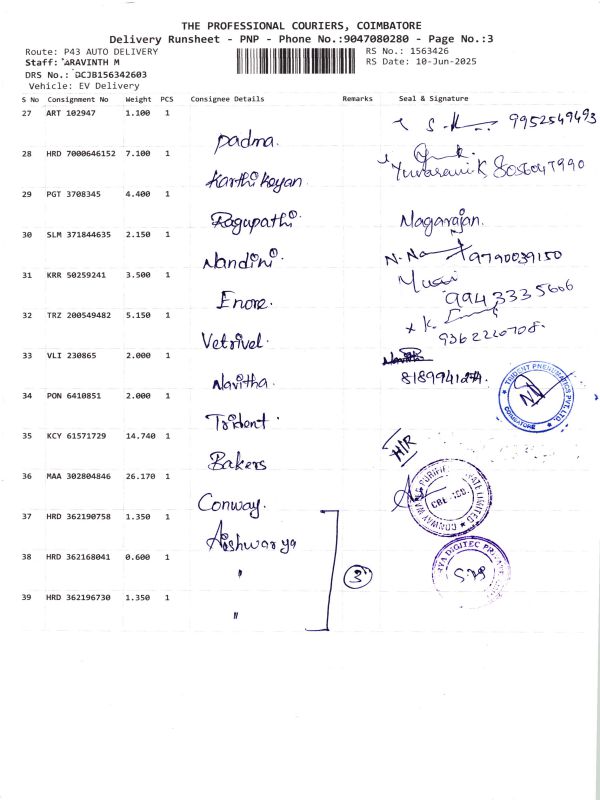 THE PROFESSIONAL COURIERS, COIMBATORE
Delivery Runsheet - PNP - Phone No.:9047080280 - Page No.:3
Route: P43 AUTO DELIVERY
RS No.: 1563426
Staff: ARAVINTH M
RS Date: 10-Jun-2025
DRS No.: DCJB156342603
Vehicle: EV Delivery
S No Consignment No Weight PCS Consignee Details Remarks Seal & Signature
27 ART 102947 1.100 1
Padma. 9952549493
28 HRD 7000646152 7.100 1
Karthikeyan. Yuvarani K
29 PGT 3708345 4.400 1
Ragupathi Nagarajan.
30 SLM 371844635 2.150 1
Nandini. 9790039150
31 KRR 50259241 3.500 1
Enore. 9943335606
32 TRZ 200549482 5.150 1
Vetrivel. 9362220708.
33 VLI 230865 2.000 1
Navitha. 8189941274.
34 PON 6410851 2.000 1
Trident. TRIDENT PNEUMATICS PVT. LTD. COIMBATORE
35 KCY 61571729 14.740 1
Bakers H/R
36 MAA 302804846 26.170 1
Conway. CONWAY PRIVATE LIMITED
37 HRD 362190758 1.350 1
Aishwarya
38 HRD 362168041 0.600 1
" 3 DIGITEC
39 HRD 362196730 1.350 1
"